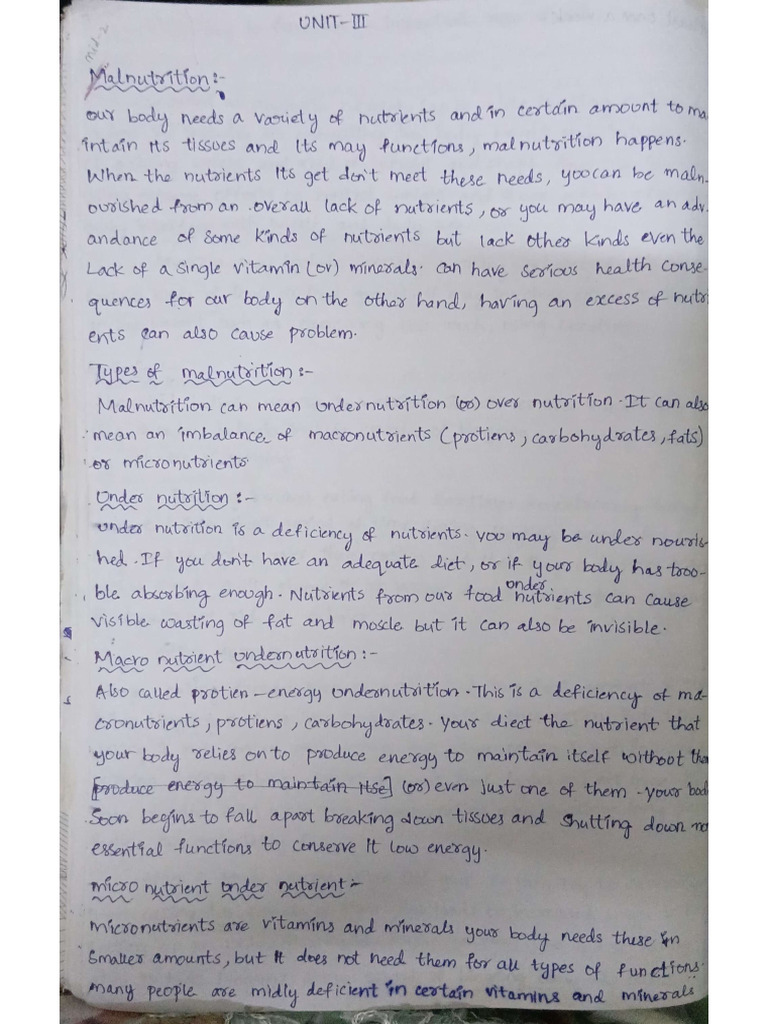 UNIT-III
mid-2
Malnutrition:-
our body needs a variety of nutrients and in certain amount to ma
intain its tissues and its may functions, malnutrition happens.
When the nutrients its get don't meet these needs, you can be maln-
ourished from an overall lack of nutrients, or you may have an adv-
andance of some kinds of nutrients but lack other kinds even the
Lack of a single vitamin (or) minerals. can have serious health conse-
quences for our body on the other hand, having an excess of nutri
ents can also cause problem.
Types of malnutrition:-
Malnutrition can mean undernutrition (or) over nutrition. It can also
mean an imbalance of macronutrients (protiens, carbohydrates, fats)
or micronutrients.
Under nutrition:-
under nutrition is a deficiency of nutrients. you may be under nouris-
hed. If you don't have an adequate diet, or if your body has trou-
ble absorbing enough. Nutrients from our food under nutrients can cause
visible wasting of fat and muscle but it can also be invisible.
Macro nutrient undernutrition:-
Also called protien-energy undernutrition. This is a deficiency of ma-
cronutrients, protiens, carbohydrates. your diect the nutrient that
your body relies on to produce energy to maintain itself without the
[produce energy to maintain itse] (or) even just one of them. your bod
Soon begins to fall apart breaking down tissues and shutting down no
essential functions to conserve it low energy.
micro nutrient under nutrient:-
micronutrients are vitamins and minerals your body needs these in
smaller amounts, but it does not need them for all types of functions.
many people are midly deficient in certain vitamins and minerals